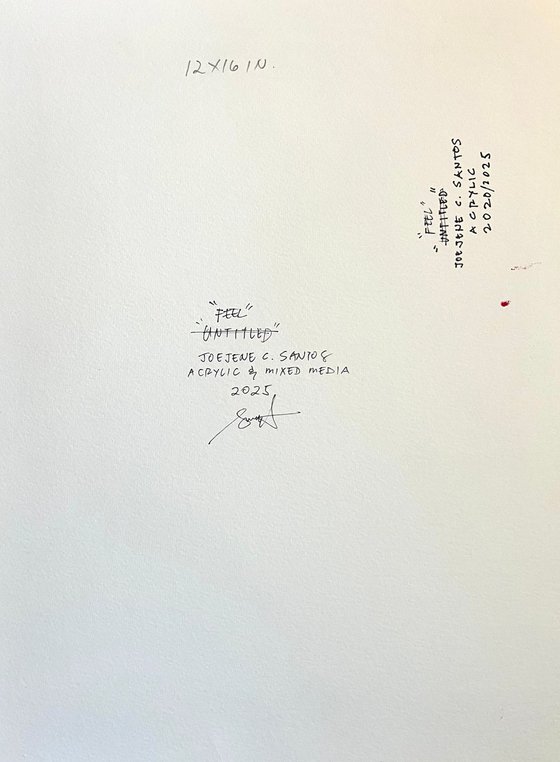 12X16 IN.
"FEEL"
"UNTITLED"
JOEJENE C. SANTOS
ACRYLIC
2020/2025
"FEEL"
"UNTITLED"
JOEJENE C. SANTOS
ACRYLIC & MIXED MEDIA
2025